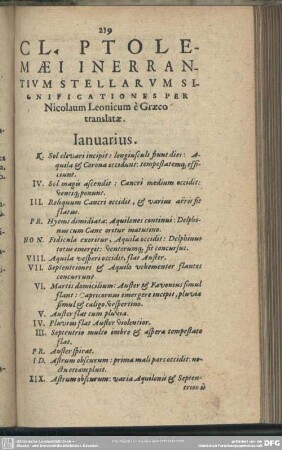 219
CL. PTOLE-
MÆI INERRAN-
TIVM STELLARVM SI-
GNIFICATIONES PER
Nicolaum Leonicum è Græco
translatæ.
Ianuarius.
K. Sol elevari incipit: longiusculi fiunt dies: A-
quila & Corona occidunt: tempestatemq́; effi-
ciunt.
IV. Sol magis ascendit: Cancri medium occidit:
Ventisq́; ponunt.
III. Reliquum Cancri occidit, & varius aëris fit
flatus.
PR. Hyems dimidiata: Aquilones continui: Delphi-
nus cum Cane oritur matutino.
NON. Fidicula exoritur, Aquila occidit: Delphinus
totus emergit: Ventorumq́; fit concursus.
VIII. Aquila vesperi occidit, flat Auster.
VII. Septentriones & Aquilo vehementer flantes
concurrunt.
VI. Martis domicilium: Auster & Favonius simul
flant: Capricornum emergere incipit, pluvia
simul & caligo vespertino.
V. Auster flat cum pluvia.
IV. Pluvius flat Auster violentior.
III. Septentrio multo imbre & aspera tempestate
flat.
PR. Auster spirat.
ID. Astrum obscurum: prima mali pars occidit: no-
ctu etiam pluit.
XIX. Astrum obscurum: varia Aquilonis & Septen-
trionis